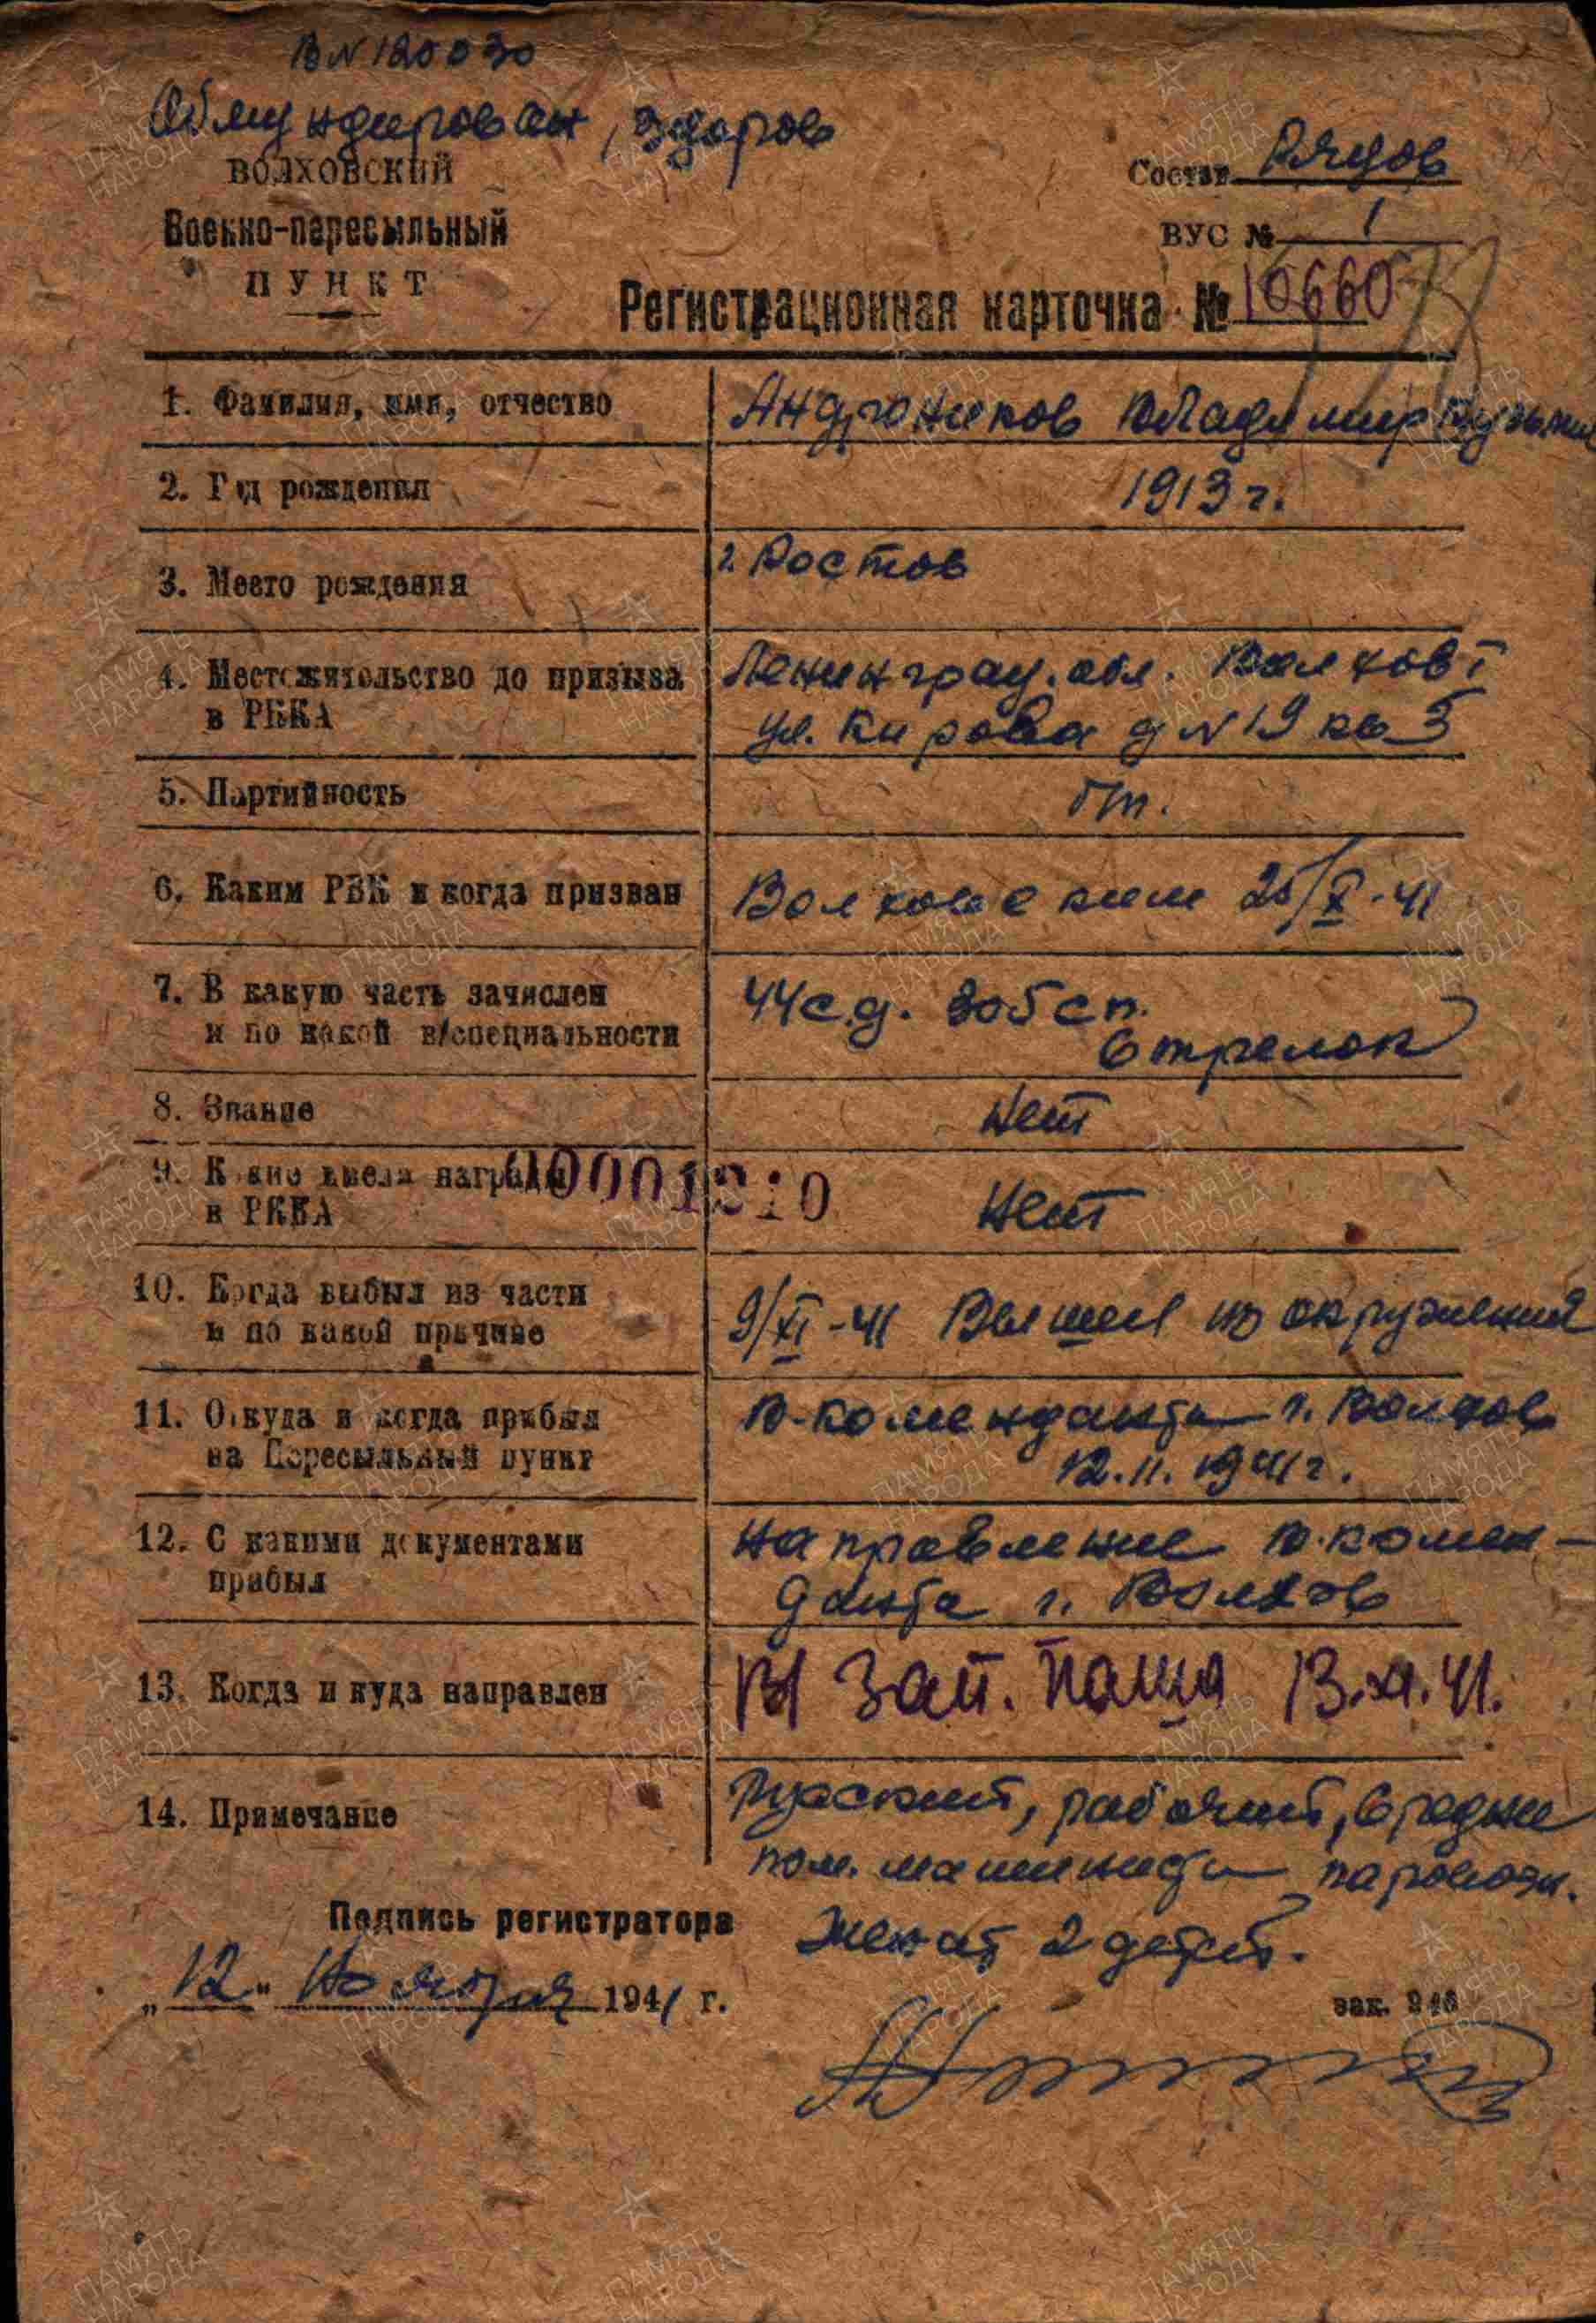 ВN 120030
Обмундирован, здоров
ВОЛХОВСКИЙ
Военно-пересыльный
ПУНКТ
Состав Рядов
ВУС № 1
Регистрационная карточка № 10660
1. Фамилия, имя, отчество
Андроников Владимир Кузьми
2. Год рождения
1913 г.
3. Место рождения
г. Ростов
4. Местожительство до призыва
в РККА
Ленинград. обл. Волхов I
ул. Кирова д N 19 кв 3
5. Партийность
б/п.
6. Каким РВК и когда призван
Волховским 25/X-41
7. В какую часть зачислен
и по какой в/специальности
44 с.д. 305 сп.
Стрелок
8. Звание
Нет
9. Какие имела награды
в РККА
00001210
Нет
10. Когда выбыл из части
и по какой причине
9/XI-41 Вышел из окружения
11. Откуда и когда прибыл
на Пересыльный пункт
В-коменданта г. Волхов
12.11.1941 г.
12. С какими документами
прибыл
Направление в.комен-
данта г. Волхов
13. Когда и куда направлен
Зап. Паша 13.XI.41.
14. Примечание
Русский, рабочий, средне
пом. машиниста паровоза.
Женат, 2 детей.
Подпись регистратора
„12" Ноября 1941 г.
зак. 946